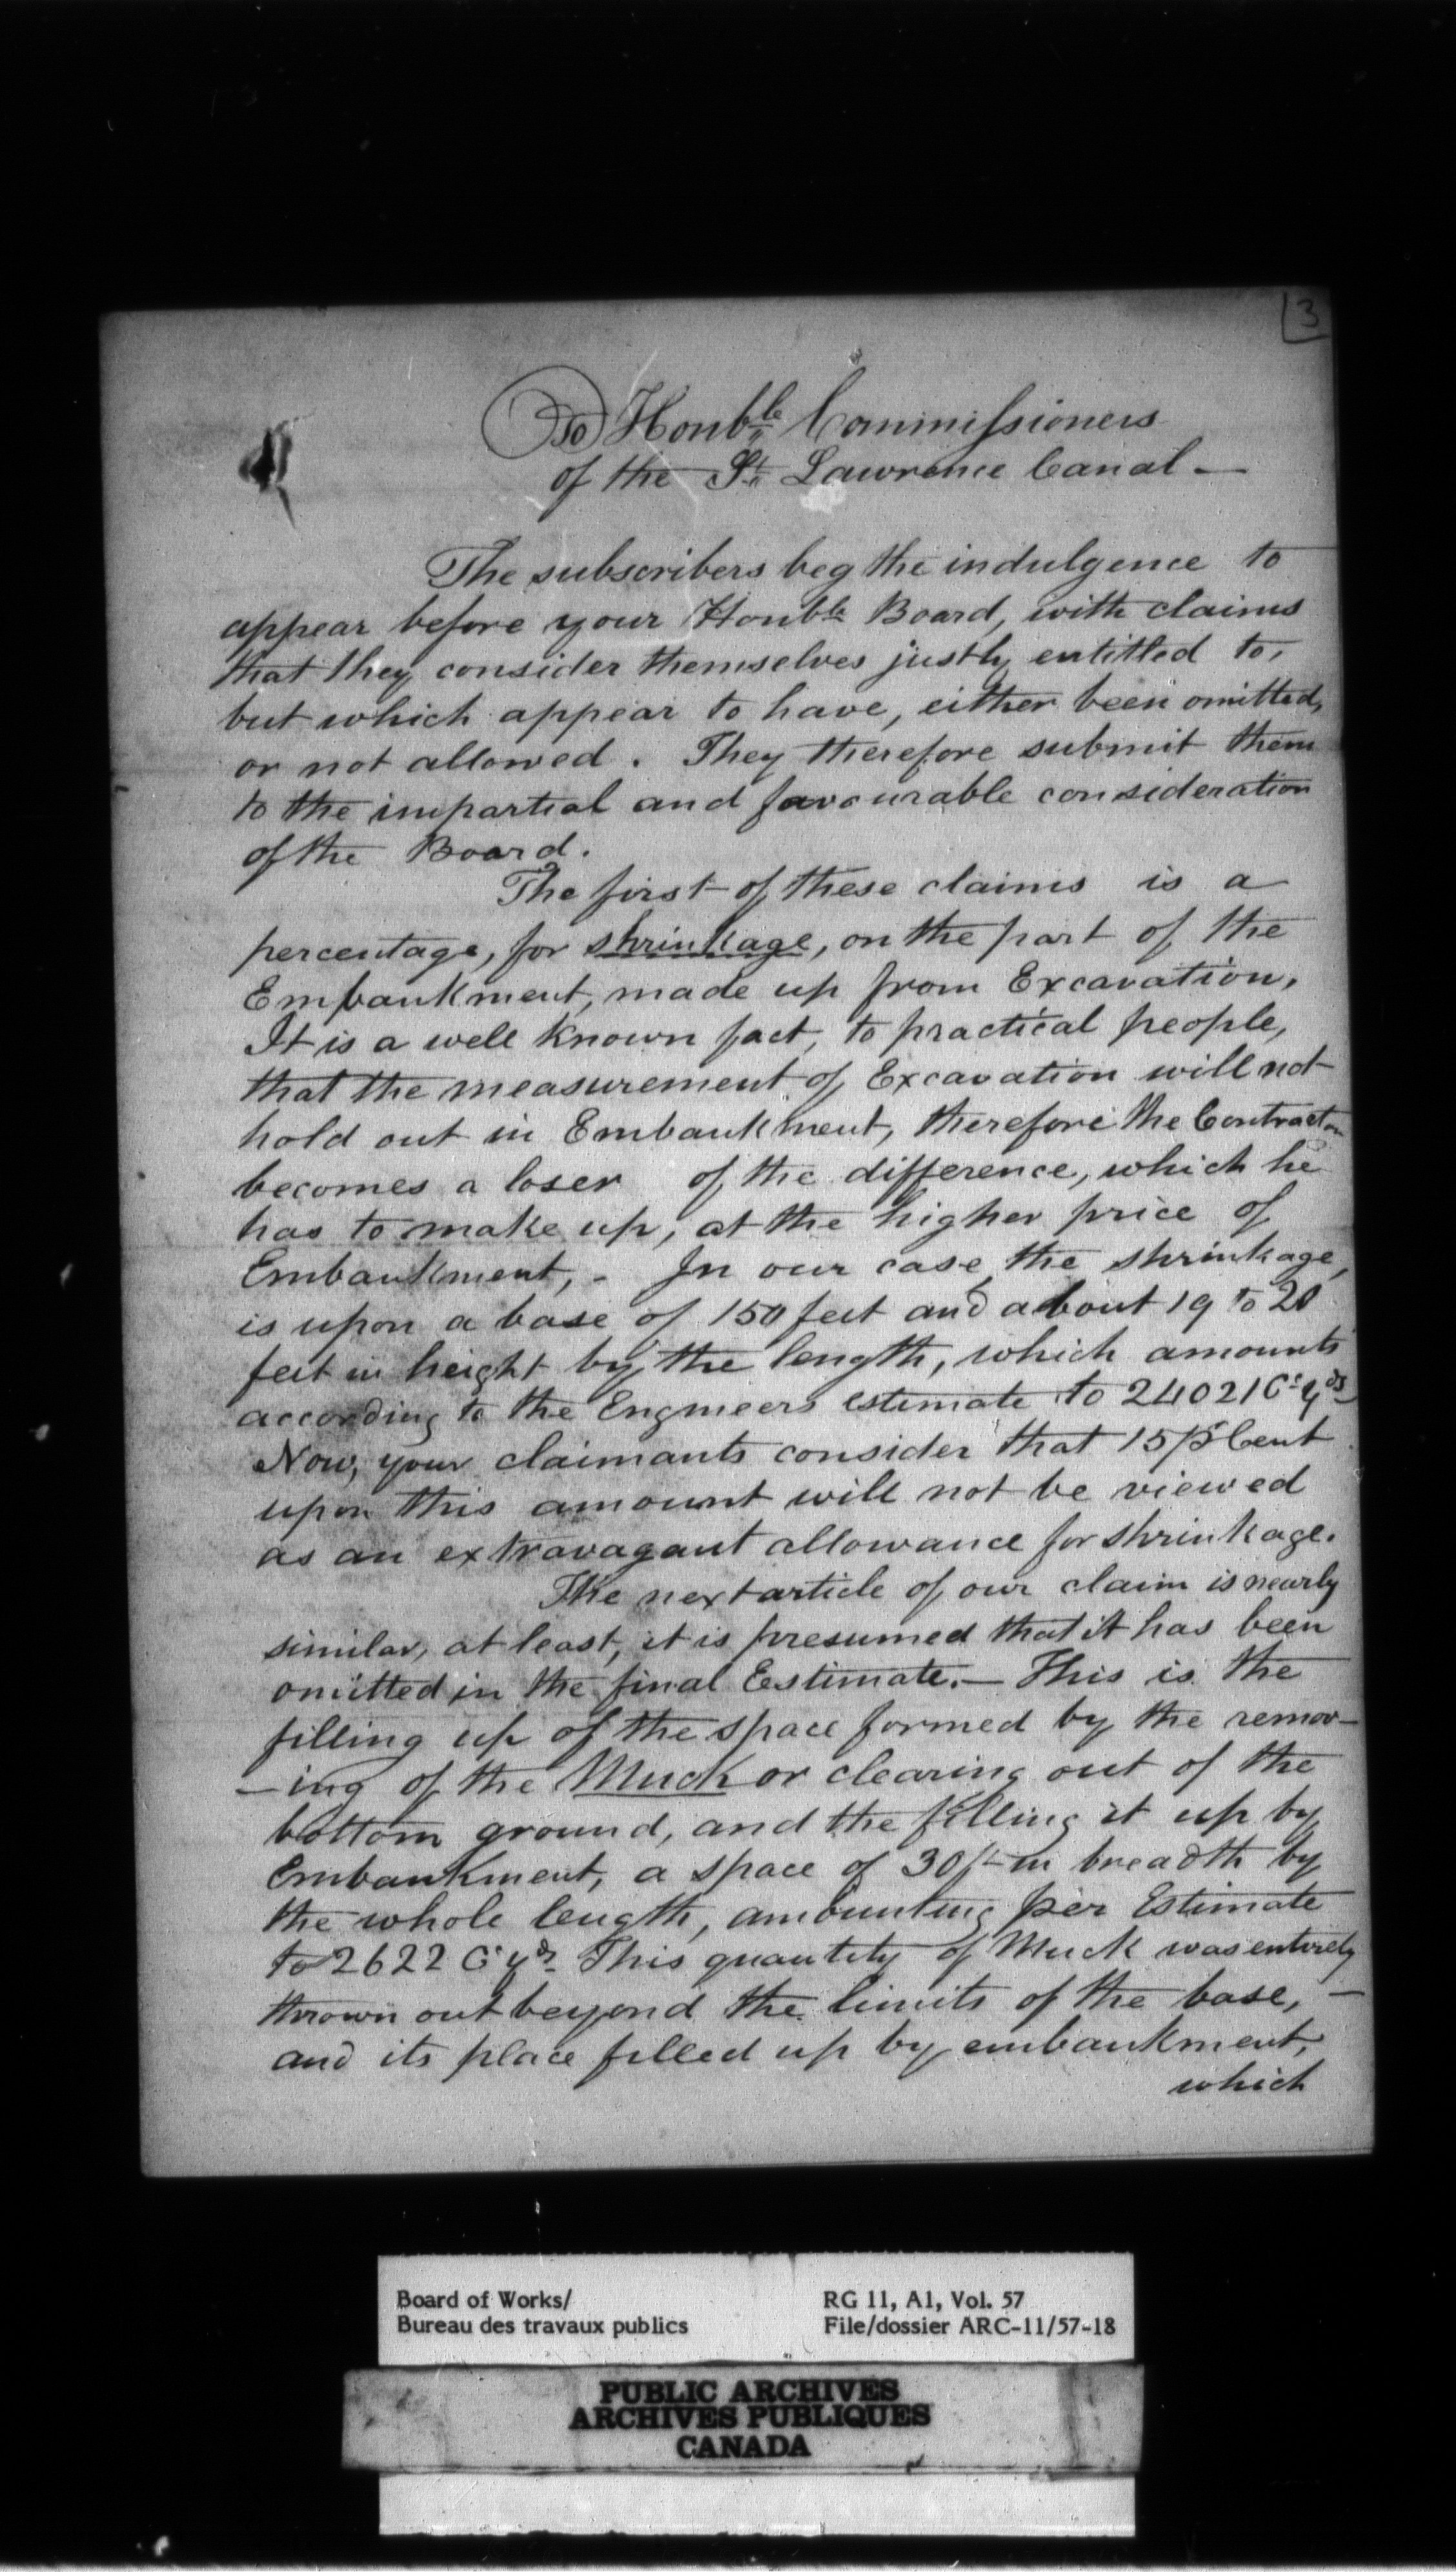 3
To Honble Commissioners
of the St. Lawrence Canal —
The subscribers beg the indulgence to
appear before your Honble Board, with claims
that they consider themselves justly entitled to,
but which appear to have, either been omitted,
or not allowed. They therefore submit them
to the impartial and favourable consideration
of the Board.
The first of these claims is a
percentage, for shrinkage, on the part of the
Embankment, made up from Excavation.
It is a well known fact, to practical people,
that the measurement of Excavation will not
hold out in Embankment, therefore the Contractor
becomes a loser of the difference, which he
has to make up, at the higher price of
Embankment, - In our case, the shrinkage,
is upon a base of 150 feet and about 19 to 20
feet in height by the length, which amounts
according to the Engineers estimate to 24021 C. yds
Now, your claimants consider that 15 pr Cent
upon this amount will not be viewed
as an extravagant allowance for shrinkage.
The next article of our claim is nearly
similar, at least, it is presumed that it has been
omitted in the final Estimate. — This is the
filling up of the space formed by the remov-
-ing of the Muck or clearing out of the
bottom ground, and the filling it up by
Embankment, a space of 30ft in breadth by
the whole length, amounting per Estimate
to 2622 C yds. This quantity of Muck was entirely
thrown out beyond the limits of the base, —
and its place filled up by embankment,
which
Board of Works/
Bureau des travaux publics
RG 11, A1, Vol. 57
File/dossier ARC-11/57-18
PUBLIC ARCHIVES
ARCHIVES PUBLIQUES
CANADA